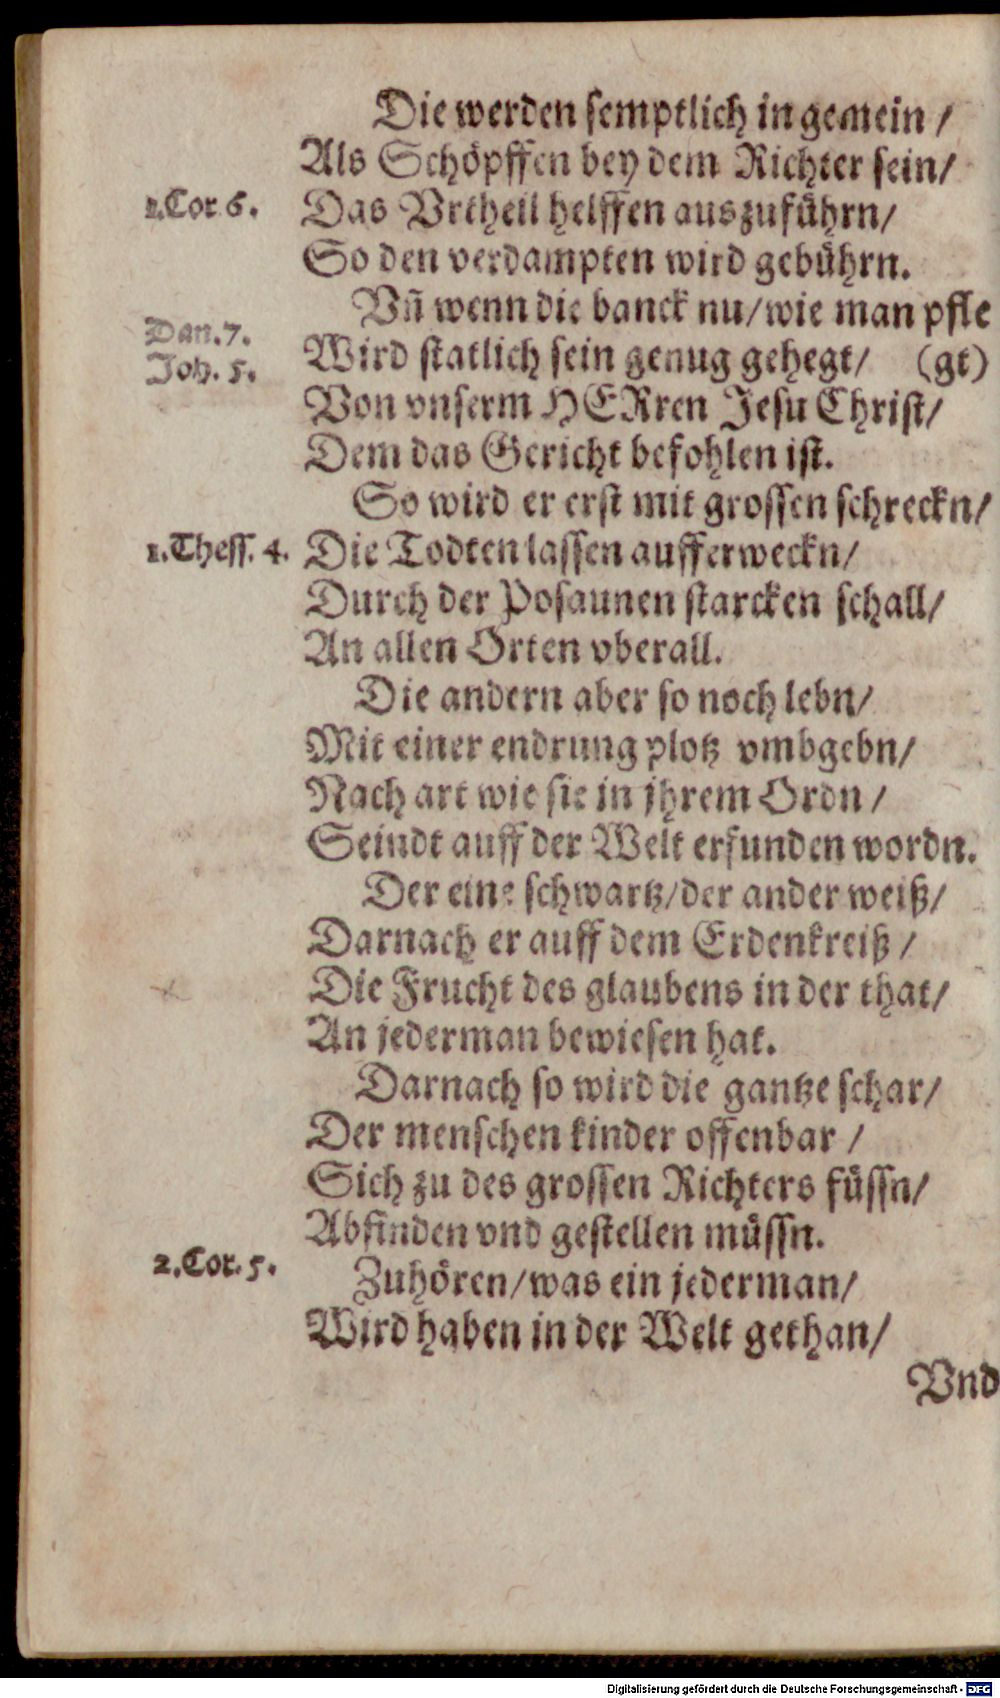 Die werden semptlich in gemein /
Als Schöpffen bey dem Richter sein/
1.Cor 6.
Das Vrtheil helffen auszuführn/
So den verdampten wird gebührn.
Vñ wenn die banck nu/wie man pfle
Dan.7.
Wird statlich sein genug gehegt/ (gt)
Joh. 5.
Von vnserm HERren Jesu Christ/
Dem das Gericht befohlen ist.
So wird er erst mit grossen schreckn/
1.Thess. 4.
Die Todten lassen aufferweckn/
Durch der Posaunen starcken schall/
An allen Orten vberall.
Die andern aber so noch lebn/
Mit einer endrung plotz vmbgebn/
Nach art wie sie in jhrem Ordn /
Seindt auff der Welt erfunden wordn.
Der eine schwartz/der ander weiß/
Darnach er auff dem Erdenkreiß /
Die Frucht des glaubens in der that/
An jederman bewiesen hat.
Darnach so wird die gantze schar/
Der menschen kinder offenbar /
Sich zu des grossen Richters füssn/
Abfinden vnd gestellen müssn.
2.Cor. 5.
Zuhören/was ein jederman/
Wird haben in der Welt gethan/
Vnd
Digitalisierung gefördert durch die Deutsche Forschungsgemeinschaft - DFG